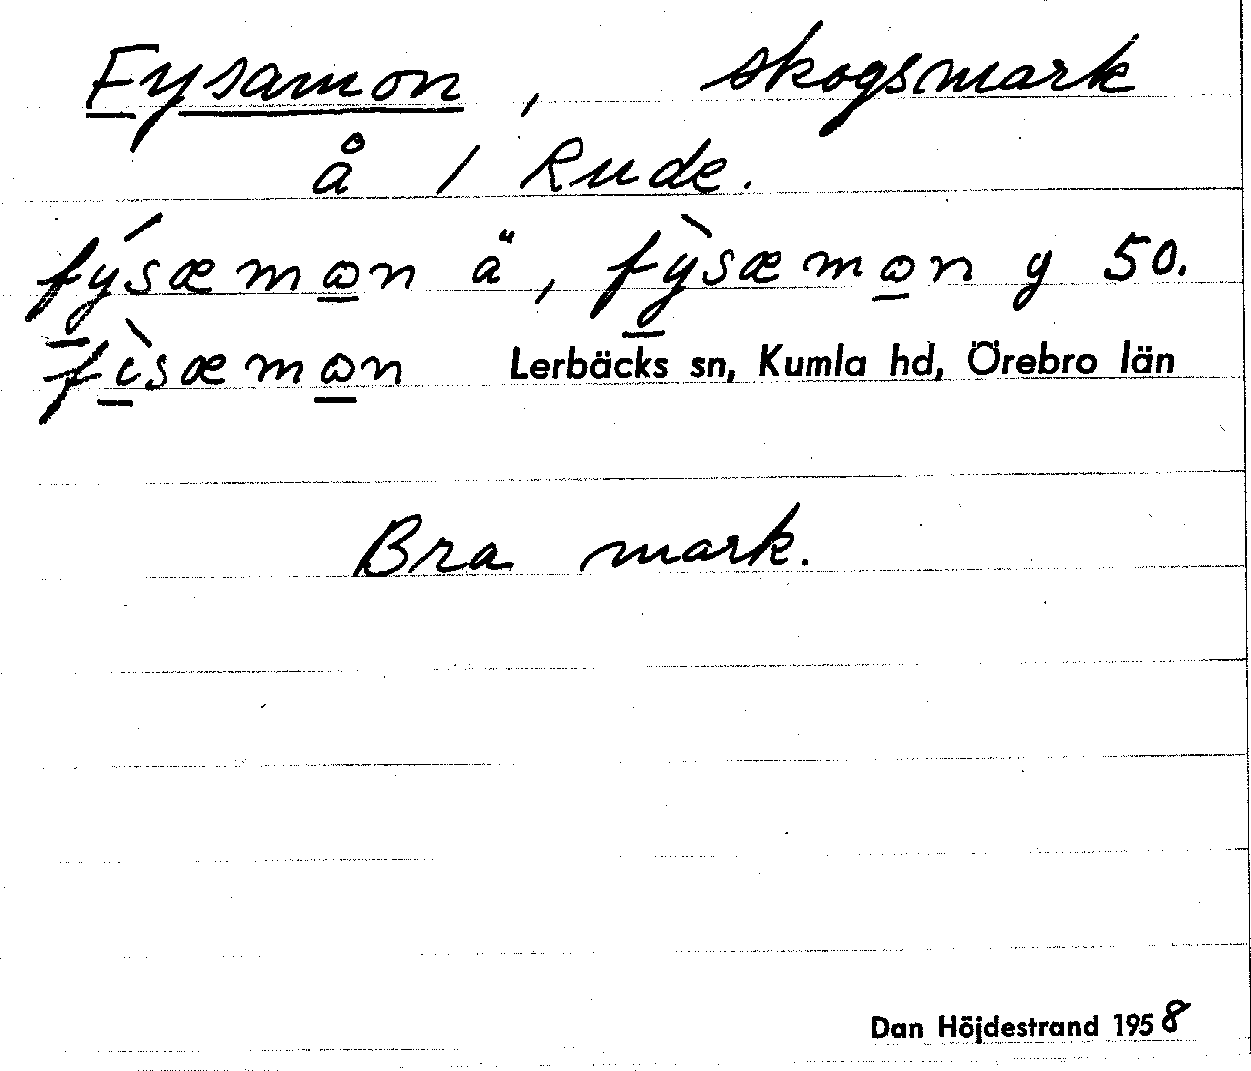 Fysamon, skogsmark
å 1 Rude.
fýsæmon ä, fỳsæmon y 50.
fìsæmon Lerbäcks sn, Kumla hd, Örebro län
Bra mark.
Dan Höjdestrand 1958